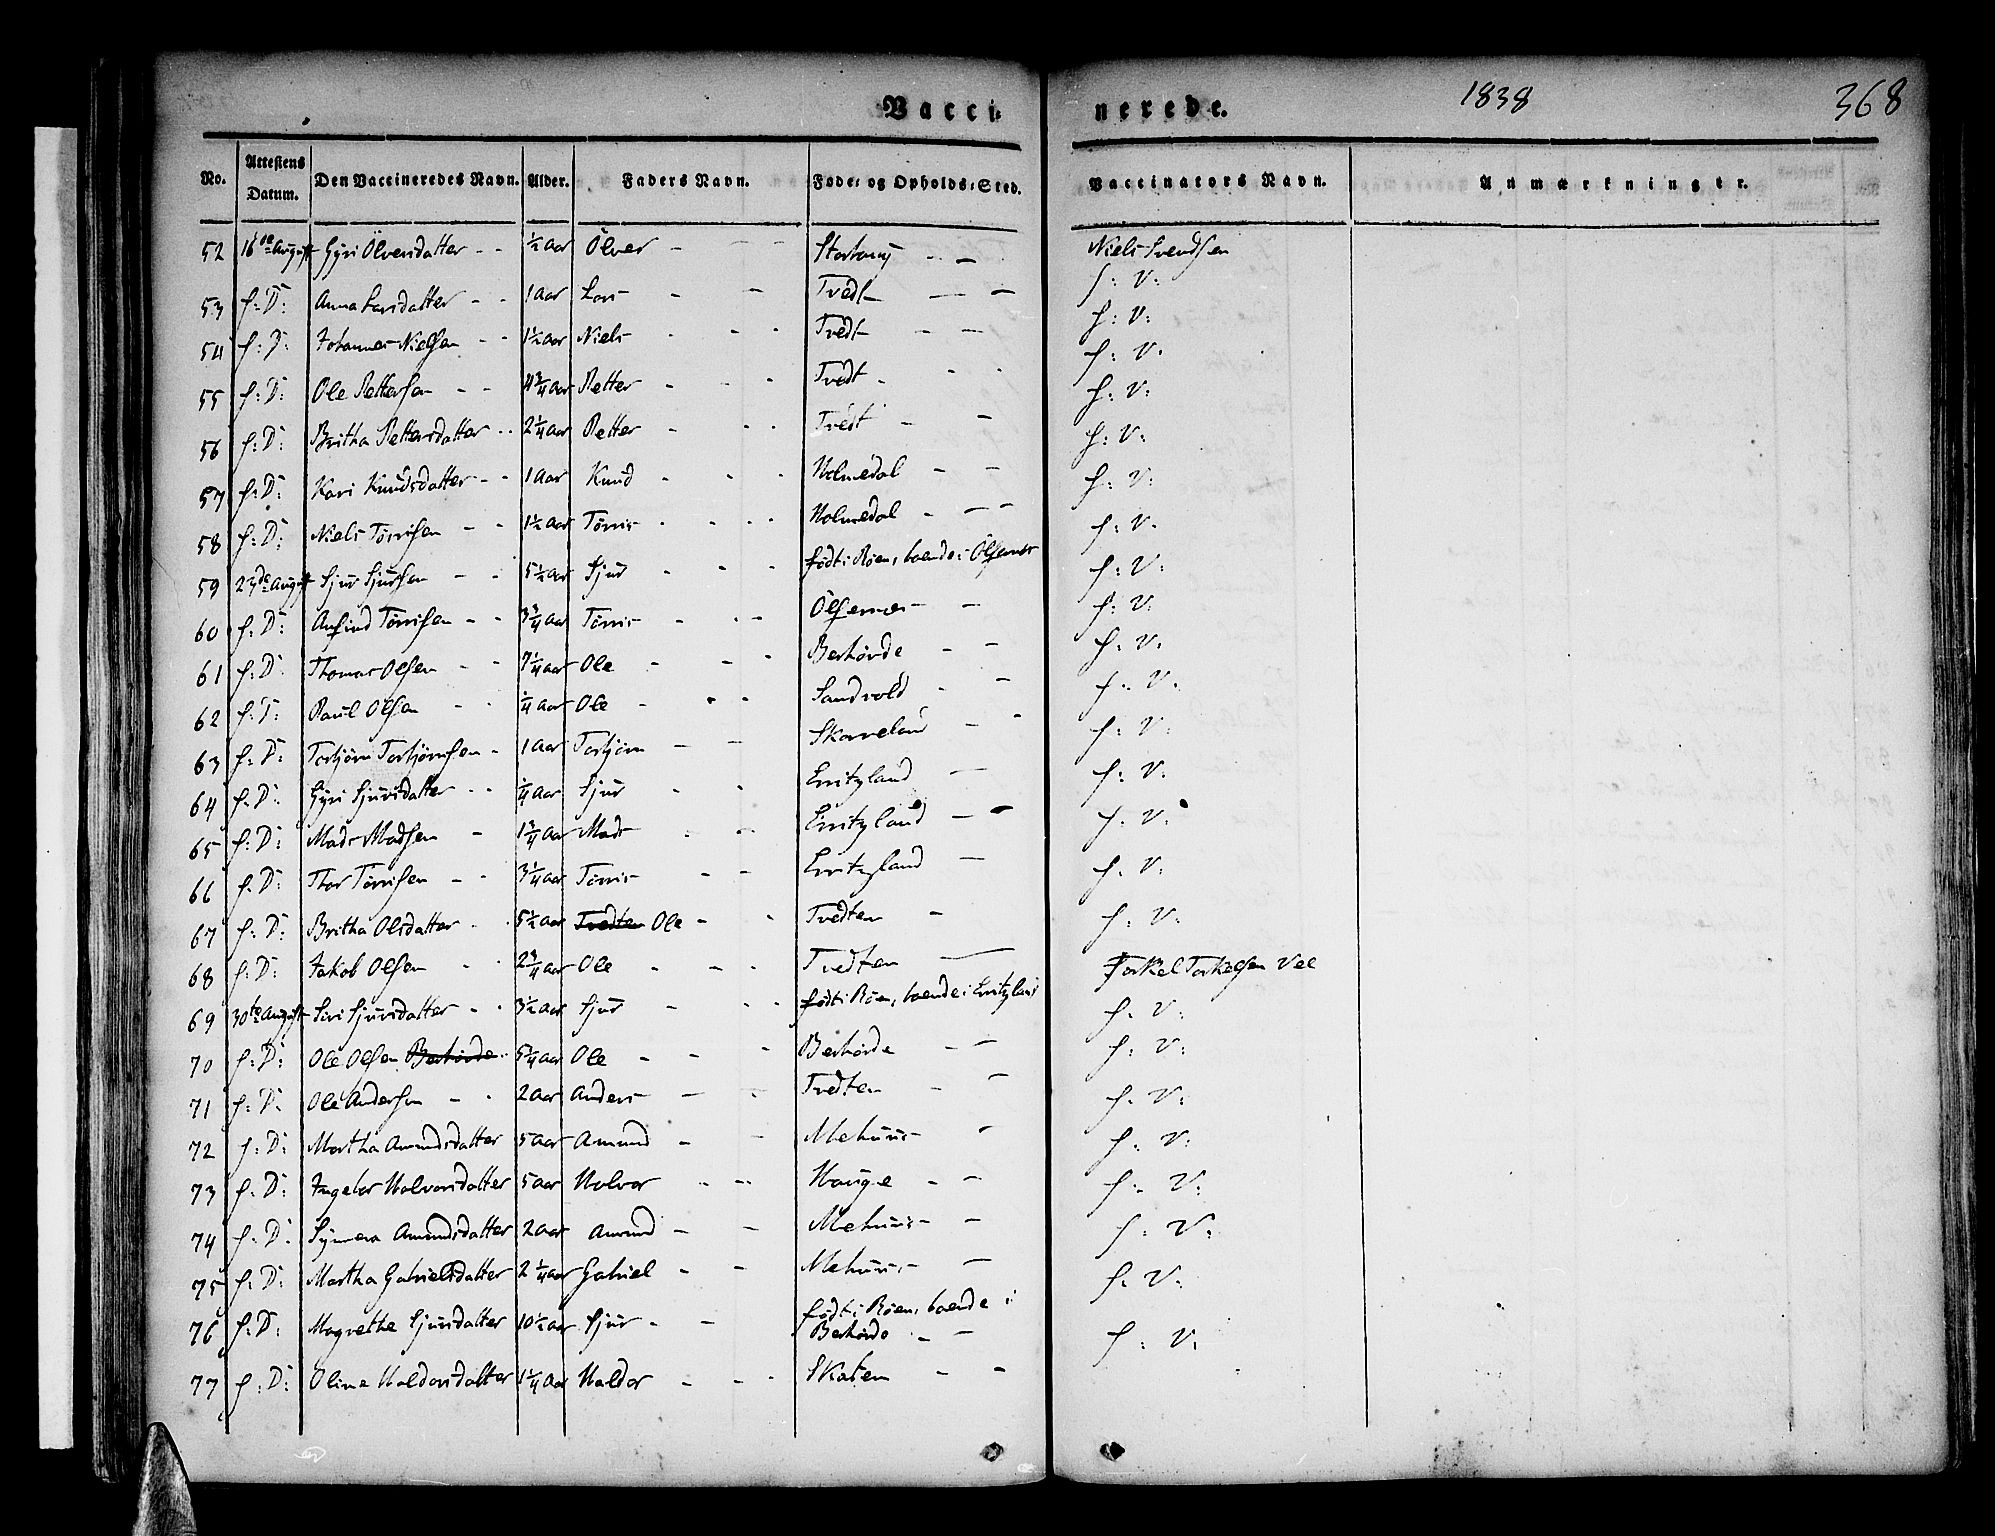 Vacci-
nerede.
1838
368
No. Attestens Datum. Den Vaccineredes Navn. Alder. Faders Navn. Føde- og Opholds-Sted. Vaccinators Navn. Anmærkninger.
52 16de August Gyri Ölversdatter - - ½ Aar Ölver - - - - - Niels Svendsen
53 f: D: Anna Larsdatter - - 1 Aar Lars - - Tvedt - - f: V:
54 f: D: Johannes Nielsen - - 1½ Aar Niels - - - Tvedt - - f: V:
55 f: D: Ole Pettersen - - 4¾ Aar Petter - - - Tvedt - - - f: V:
56 f: D: Britha Pettersdatter - - 2¼ Aar Petter - - - Tvedt - - f: V:
57 f: D: Kari Knudsdatter - - 1 Aar Knud - - - Holmedal - - f: V:
58 f: D: Niels Tørrisen - - 1½ Aar Tørris - - - - Holmedal - - - f: V:
59 23de August Sjur Sjursen - - 5½ Aar Sjur - - - født i Røen, boende i Ölfernes f: V:
60 f: D: Anfind Tørrisen - - 3¾ Aar Tørris - - - - Ölfernes - - f: V:
61 f: D: Thomas Olsen - - 7¼ Aar Ole - - - Berhövde - - f: V:
62 f: D: Paul Olsen - - ¼ Aar Ole - - - Sandvold - - f: V:
63 f: D: Torbjörn Torbjörnsen - 1 Aar Torbjörn - - Skarveland - - f: V:
64 f: D: Gyri Sjursdatter - - ¼ Aar Sjur - - Enitzland - f: V:
65 f: D: Mads Madsen - 1¾ Aar Mads - - - Enitzland - - f: V:
66 f: D: Thor Tørrisen - - 3¼ Aar Tørris - - Enitzland - f: V:
67 f: D: Britha Olsdatter - - 5½ Aar Tvedten Ole - - Tvedten - f: V:
68 f: D: Jakob Olsen - - 2¾ Aar Ole - - - Tvedten - Torkel Torkelsen Vee
69 30te August Siri Sjursdatter - - 3½ Aar Sjur - - - født i Røen, boende i Enitzland f: V:
70 f: D: Ole Olsen Berhövde - - 5¼ Aar Ole - - - Berhövde - - f: V:
71 f: D: Ole Andersen - - 2 Aar Anders - - Tvedten - - f: V:
72 f: D: Martha Amundsdatter 5 Aar Amund - - Mehuus - - f: V:
73 f: D: Ingebor Halvorsdatter 5 Aar Halvor - - Houge - - f: V:
74 f: D: Synneva Amundsdatter 2 Aar Amund - - Mehuus - - f: V:
75 f: D: Martha Gabrielsdatter 2¼ Aar Gabriel - - Mehuus - - f: V:
76 f: D: Magrethe Sjursdatter 10½ Aar Sjur - - født i Røen, boende i
Berhövde - -
77 f: D: Oline Haldorsdatter 1¼ Aar Haldor - - - Skaten - - f: V: